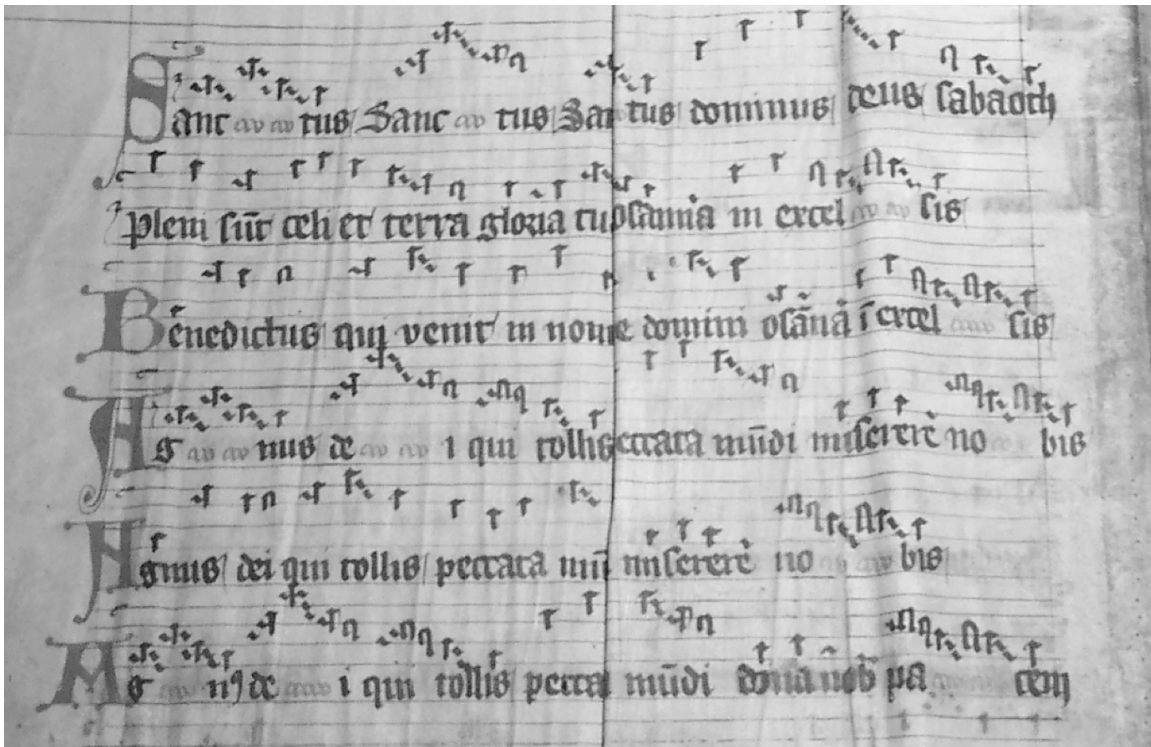 Sanc tus Sanc tus San tus dominus deus sabaoth
Pleni sūt celi et terra gloria tu osanna in excel sis
Benedictus qui venit in nomine domini osāna ī excel sis
Ag nus de i qui tollis peccata mūdi miserere no bis
Agnus dei qui tollis peccata mūdi miserere no bis
Ag nꝰ de i qui tollis pecca mūdi dona nob pa cem